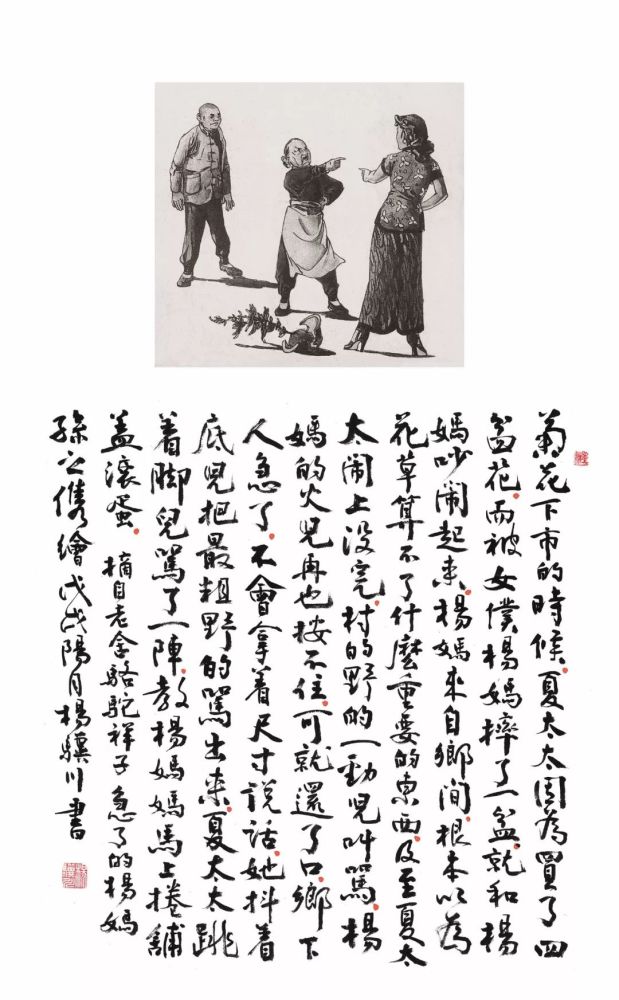 菊花下市的時候夏太太因為買了四
盆花而被女僕楊媽摔了一盆就和楊
媽吵鬧起來楊媽來自鄉間根本以為
花草算不了什麼重要的東西及至夏太
太鬧上没完村的野的一勁兒叫罵楊
媽的火兒再也按不住可就還了口鄉下
人急了不會拿着尺寸說話她抖着
底兒把最粗野的罵出來夏太太跳
着脚兒罵了一陣教楊媽馬上捲鋪
盖滚蛋 摘自老舍駱駝祥子 急了的楊媽
孫之儁繪 戊戌陽月楊驥川書